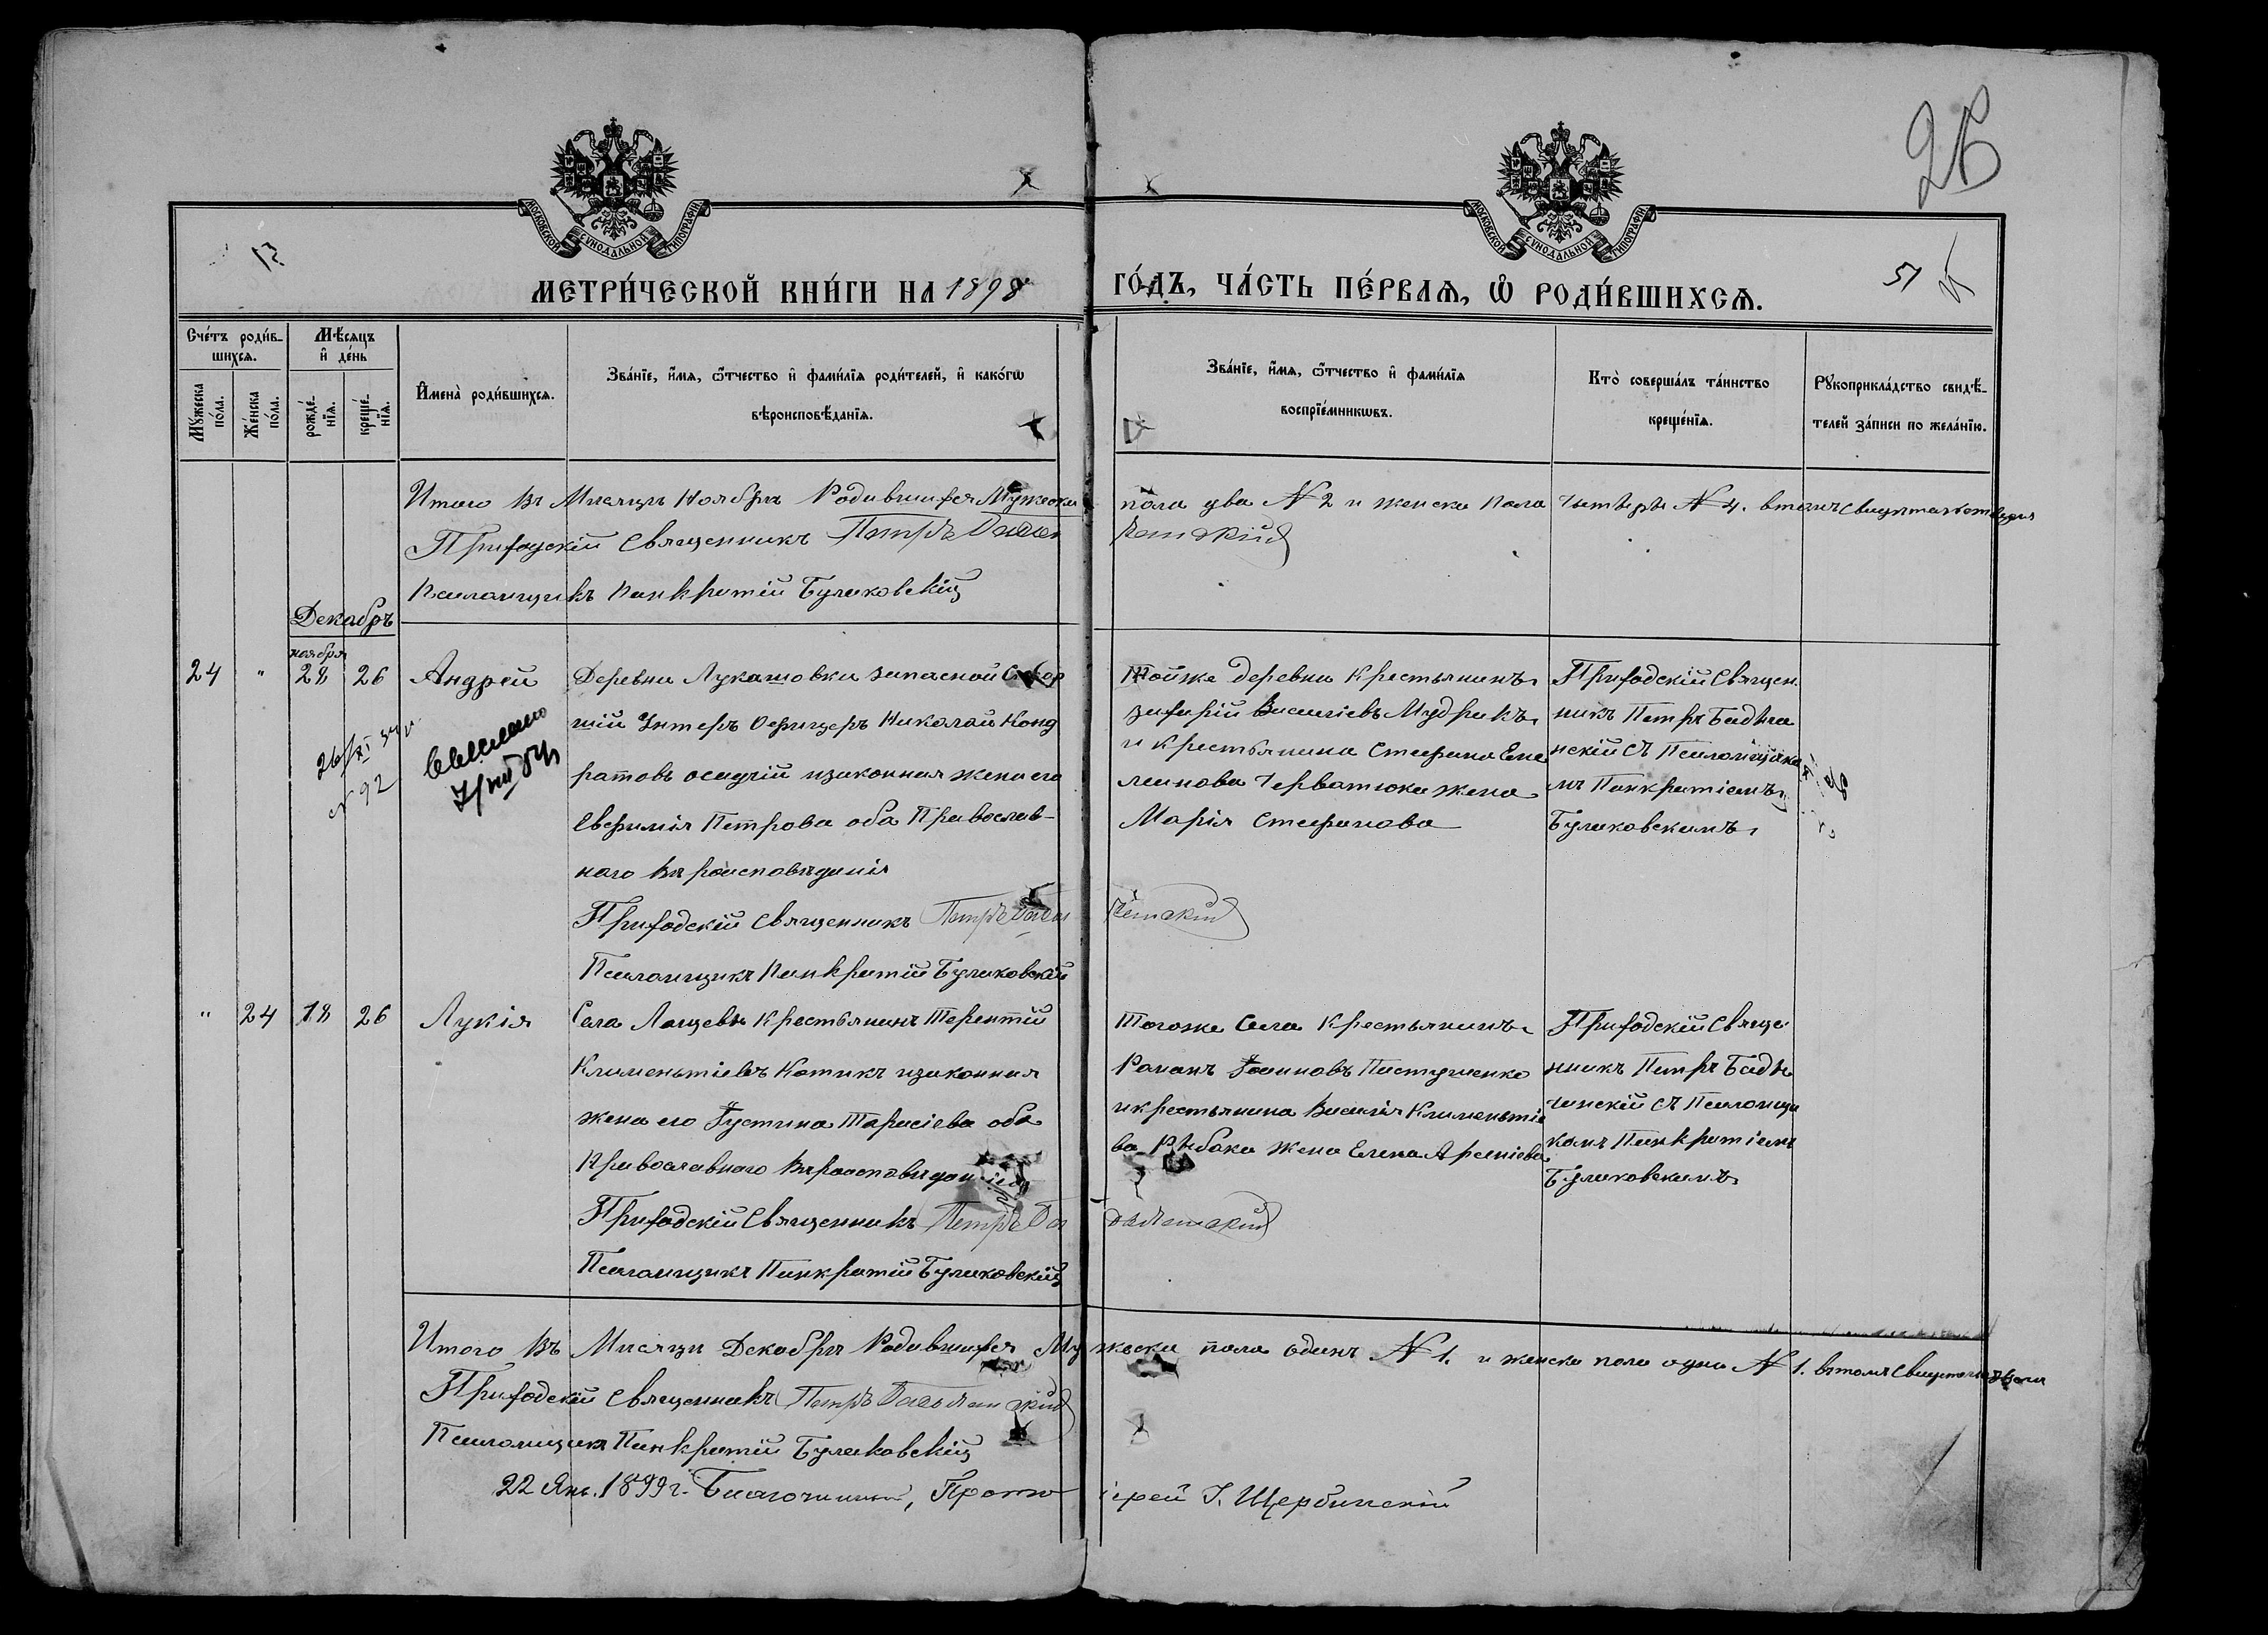 26
МОСКОВСКОЙ СѴНОДАЛЬНОЙ ТИПОГРАФІИ
МОСКОВСКОЙ СѴНОДАЛЬНОЙ ТИПОГРАФІИ
МЕТРИ́ЧЕСКОЙ КНИ́ГИ НА 1898 ГО́ДЪ, ЧА́СТЬ ПЕ́РВАЯ, Ѡ РОДИ́ВШИХСЯ.
51
Сче́тъ роди́в-
шихся.
Мѣ́сяцъ
и де́нь
Мꙋ́жеска
по́ла.
Же́нска
по́ла.
рожде́-
нїя.
креще́-
нїя.
Имена̀ роди́вшихся.
Зва́нїе, и́мя, ѻ́тчество и фами́лїя роди́телей, и како́гѡ
вѣроисповѣ́данїя.
Зва́нїе, и́мя, ѻ́тчество и фами́лїя
воспрїе́мникѡвъ.
Кто̀ соверша́лъ та́инство
креще́нїя.
Рꙋкоприкла́дство свидѣ́-
телей за́писи по жела́нїю.
Итого въ Мисяцъ Ноябръ Родившихся Мужеска пола два № 2 и женска пола четыре № 4. втомъ свидетельствуемъ
Приходскій Священникъ Петръ
Псаломщикъ Панкратій Булаковскій
Декабръ
ноября
24 " 28 26 Андрей
26/XI
№ 92
Деревни Лукашовки запасной
шій Унтеръ Офицеръ Николай Конд
ратовъ осадчій изаконная жена его
Евфимія Петрова оба Православ-
наго Вѣроисповѣданія
Приходскій Священникъ Петръ
Псаломщикъ Панкратій Булаковскій
Тойже деревни Крестьянинъ
Василіевъ Мудрикъ
и крестьянина Стефана Еме
леянова Черватюка жена
Марія Стефанова
Приходскій Священ
никъ Петръ
нскій съ Псаломщико
мъ Панкратіемъ
Булаковскимъ
" 24 18 26 Лукія
Села Лащевъ Крестьянинъ Терентій
Климентіевъ Котикъ изаконная
жена его Іустина Тарасіева оба
Православнаго Вѣроисповѣданія
Приходскій Священникъ Петръ
Псаломщикъ Панкратій Булаковскій
Тогоже Села Крестьянинъ
Романъ Іоанновъ Пастушенко
икрестьянина Василія Климентіе
ва Рыбака жена Елена Арсеніева
Приходскій Священ
никъ Петръ
чинскій съ Псаломщи
комъ Панкратіемъ
Булаковскимъ
Итого Въ Мисяцъ Декабръ Родившихся Мужеска пола одинъ № 1. и женска пола одна № 1. втомъ свидетельствуемъ
Приходскій Священникъ Петръ
Псаломщикъ Панкратій Булаковскій
22 Янв. 1899 г. Благочинный, Протоіерей І. Щербинскій